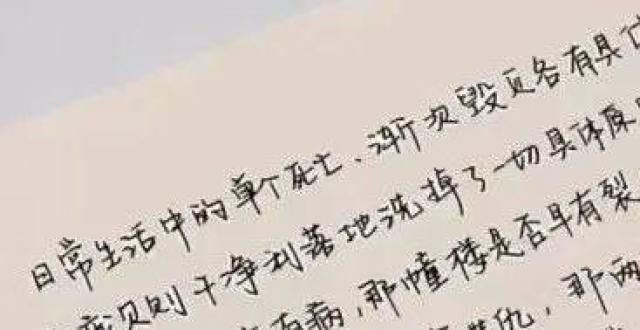 日常生活中的单个死亡、渐次毁灭各有具体
则干净利落地洗掉了一切具体原
有病，那幢楼是否早有裂
仇，那两